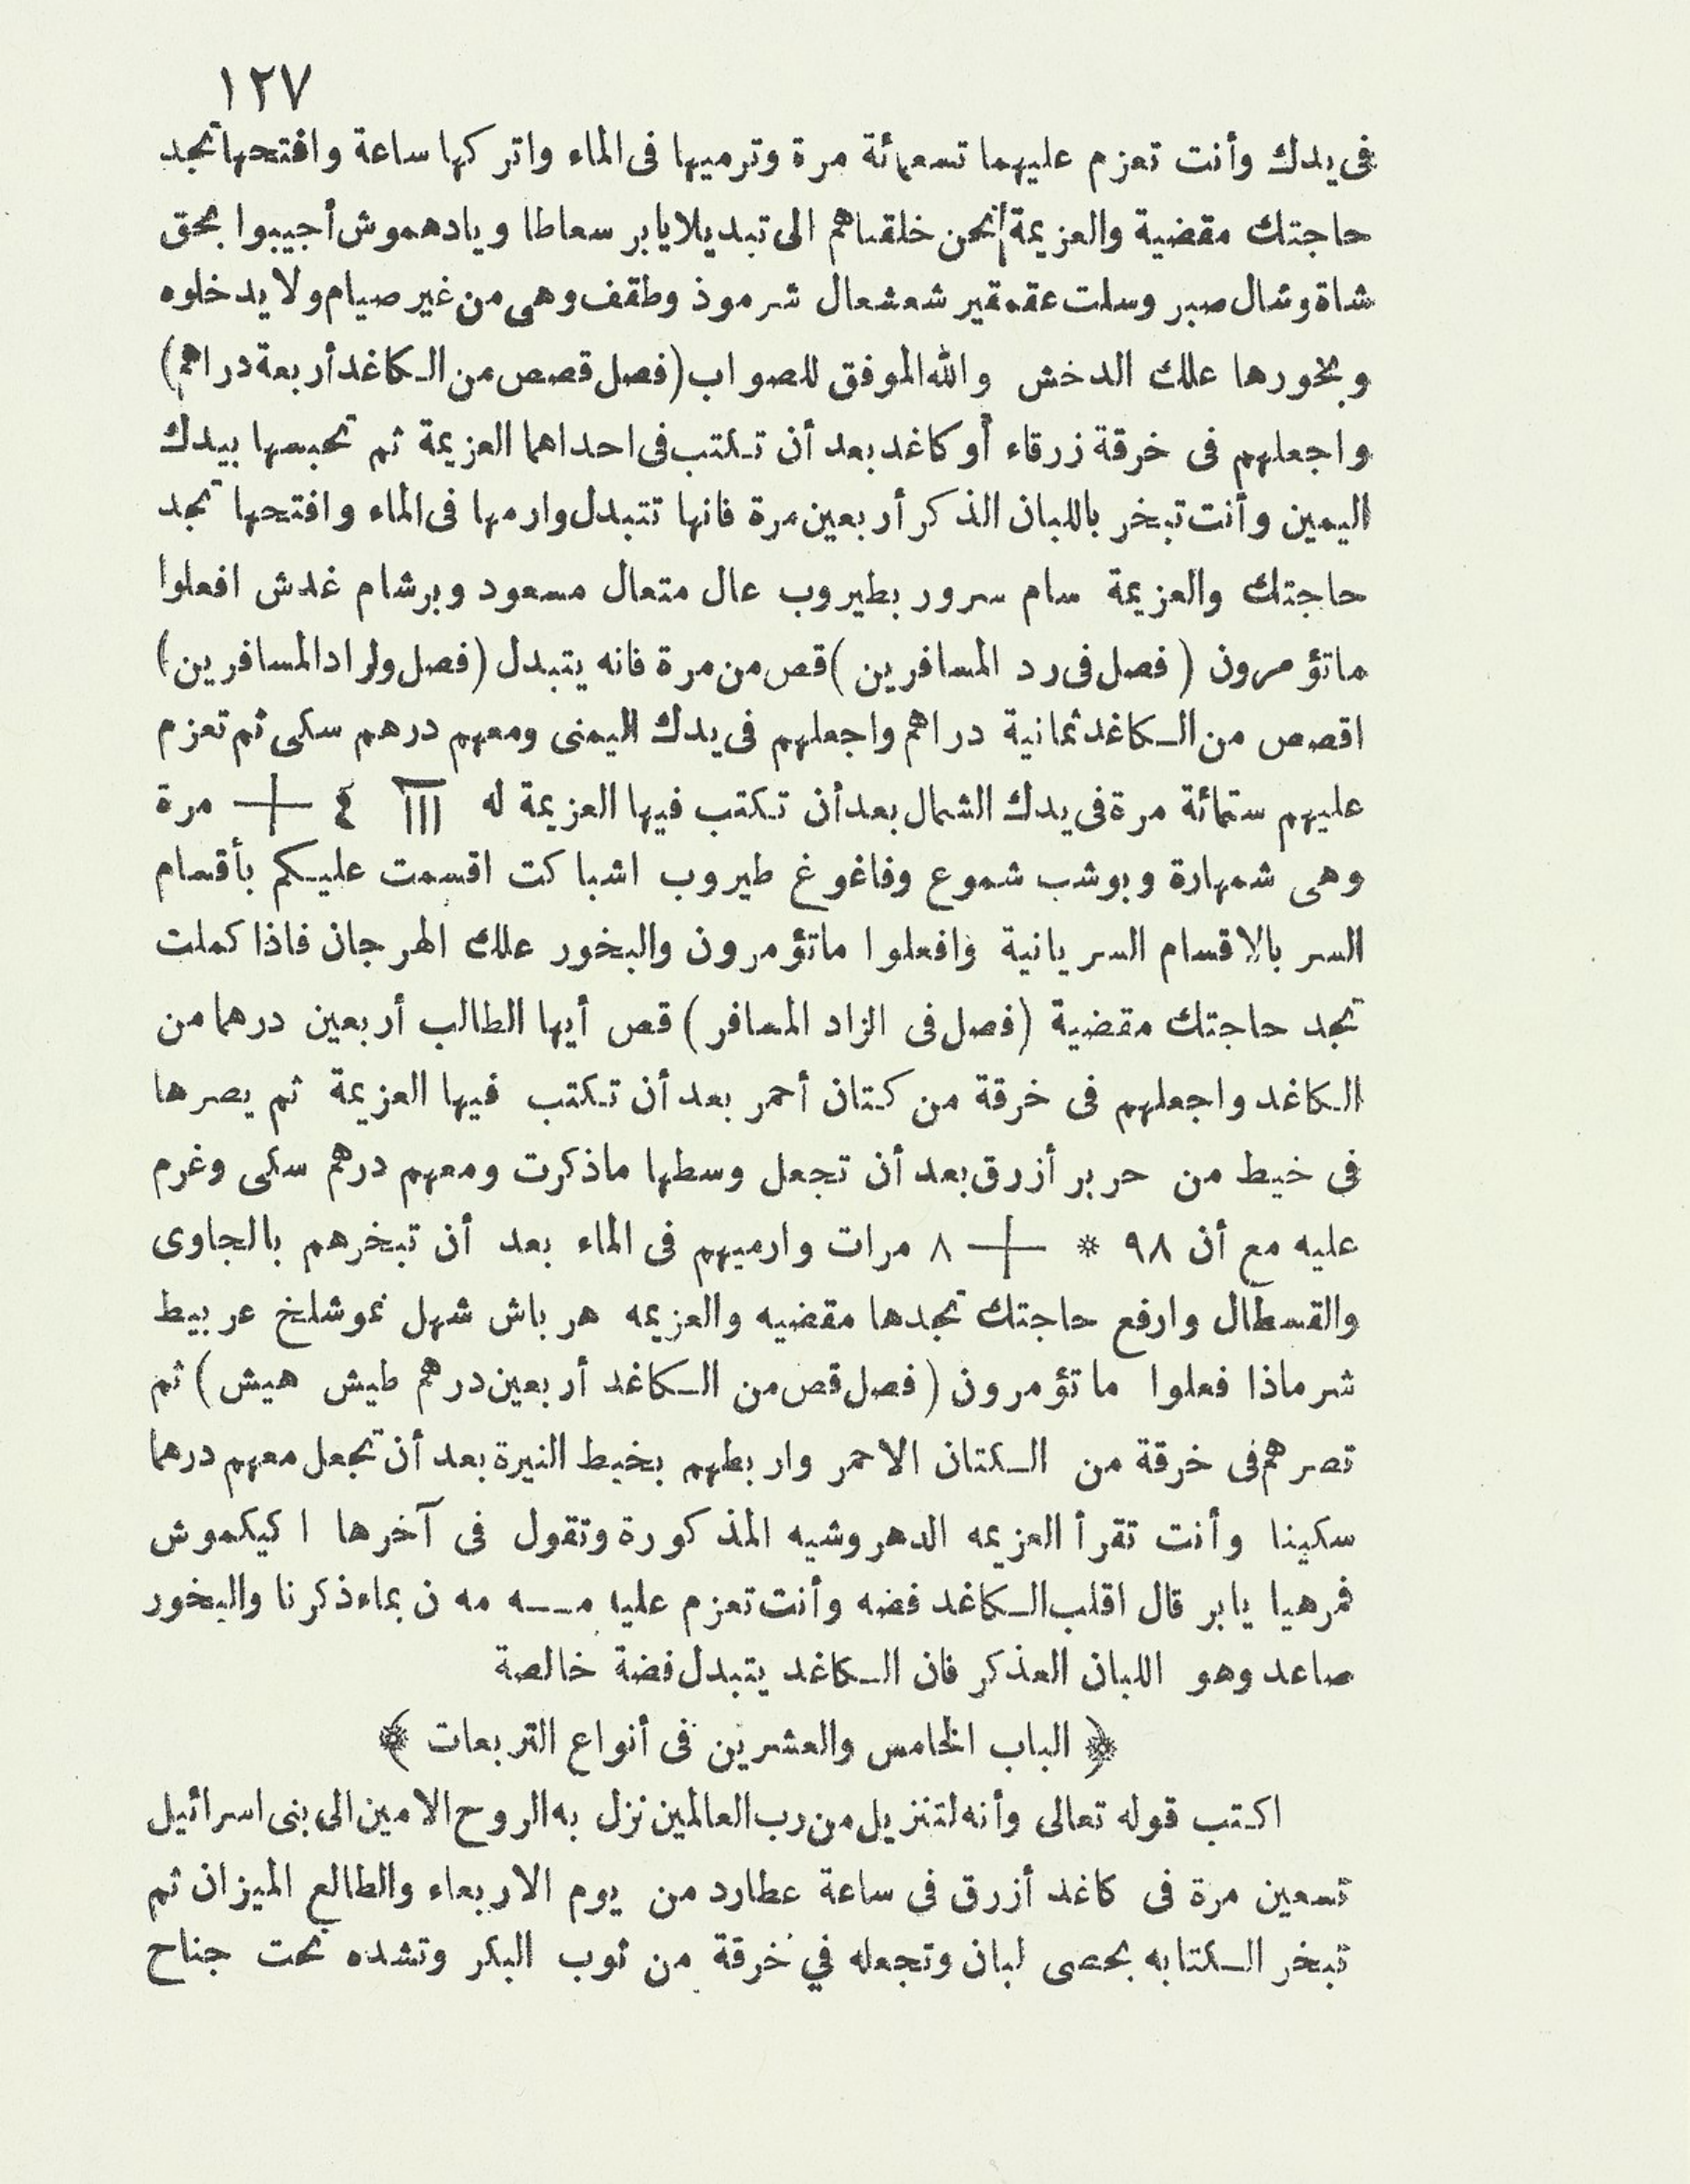 ١٢٧
فى يدك وأنت تعزم عليهما تسعمائة مرة وترميها فى الماء واتركها ساعة وافتحها تجد
حاجتك مقضية والعزيمة نحن خلقناهم الى تبديلا يابر سعاطا ويادهموش أجيبوا بحق
شاة وشال صبر وسلت عقمقير شعشعال شرموذ وطقف وهى من غير صيام ولا يدخلوه
وبخورها علك الدخش والله الموفق للصواب (فصل قصص من الكاغد أربعة دراهم)
واجعلهم فى خرقة زرقاء أو كاغد بعد أن تكتب فى احداهما العزيمة ثم تحبسها بيدك
اليمين وأنت تبخر باللبان الذكر أربعين مرة فانها تتبدل وارمها فى الماء وافتحها تجد
حاجتك والعزيمة سام سرور بطيروب عال متعال مسعود وبرشام غدش افعلوا
ماتؤمرون (فصل فى رد المسافرين) قص من مرة فانه يتبدل (فصل ولراد المسافرين)
اقصص من الكاغد ثمانية دراهم واجعلهم فى يدك اليمنى ومعهم درهم سكى ثم تعزم
عليهم ستمائة مرة فى يدك الشمال بعد أن تكتب فيها العزيمة له مرة
وهى شمهارة وبوشب شموع وفاغوغ طيروب اشباكت اقسمت عليكم بأقسام
السر بالاقسام السريانية وافعلوا ماتؤمرون والبخور علك المرجان فاذا كملت
تجد حاجتك مقضية (فصل فى الزاد المسافر) قص أيها الطالب أربعين درهما من
الكاغد واجعلهم فى خرقة من كتان أحمر بعد أن تكتب فيها العزيمة ثم يصرها
فى خيط من حرير أزرق بعد أن تجعل وسطها ماذكرت ومعهم درهم سكى وغرم
عليه مع أن ٩٨ * ٨ مرات وارميهم فى الماء بعد أن تبخرهم بالجاوى
والقسطال وارفع حاجتك تجدها مقضيه والعزيمه هرباش شهل نموشلخ عربيط
شرماذا فعلوا ماتؤمرون (فصل قص من الكاغد أربعين درهم طيش هيش) ثم
تصرهم فى خرقة من الكتان الاحمر واربطهم بخيط النيرة بعد أن تجعل معهم درهما
سكينا وأنت تقرأ العزيمه الدهروشيه المذكورة وتقول فى آخرها اكيكموش
فمرهيا يابر قال اقلب الكاغد فضه وأنت تعزم عليه مـه مه ن بماء ذكرنا والبخور
صاعد وهو اللبان العذكر فان الكاغد يتبدل فضة خالصة
﴿ الباب الخامس والعشرين فى أنواع التربعات ﴾
اكتب قوله تعالى وأنه لتنزيل من رب العالمين نزل به الروح الامين الى بنى اسرائيل
تسعين مرة فى كاغد أزرق فى ساعة عطارد من يوم الاربعاء والطالع الميزان ثم
تبخر الكتابه بحصى لبان وتجعله في خرقة من ثوب البكر وتشده تحت جناح